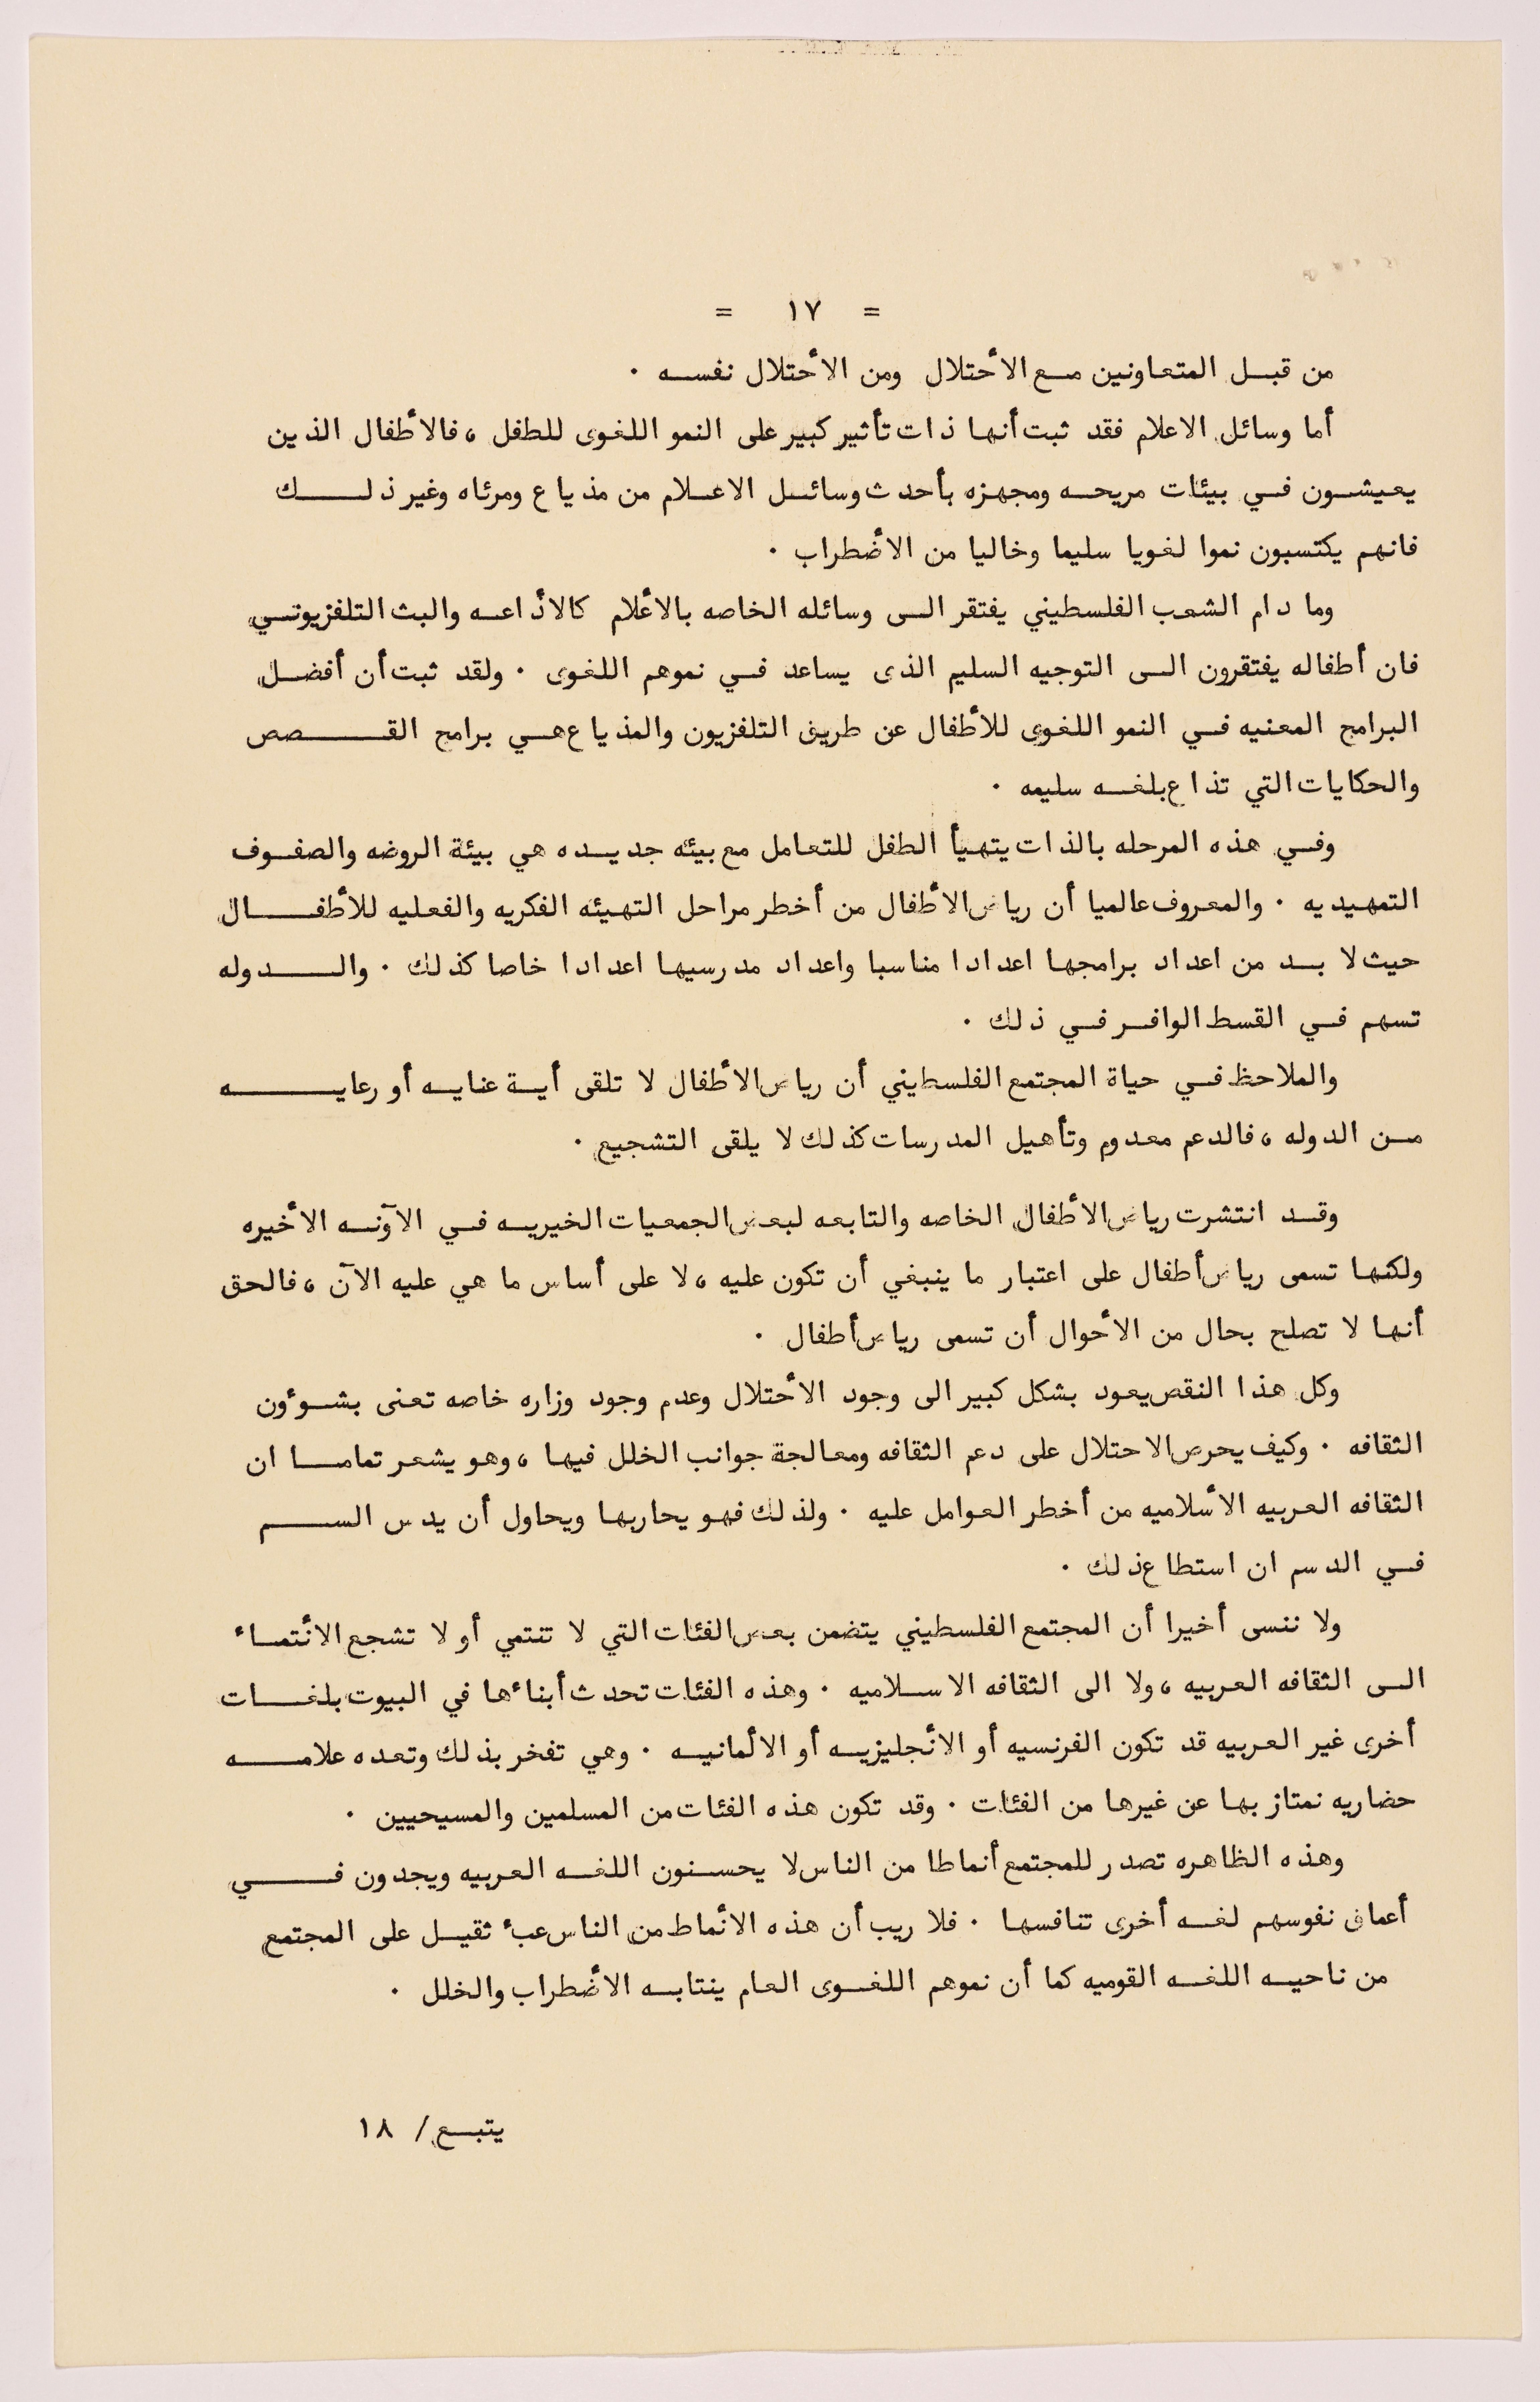 = ١٧ =
من قبل المتعاونين مع الأحتلال ومن الأحتلال نفسه .
أما وسائل الاعلام فقد ثبت أنها ذات تأثير كبير على النمو اللغوى للطفل ، فالأطفال الذين
يعيشون في بيئات مريحه ومجهزه بأحدث وسائل الاعلام من مذياع ومرئاه وغير ذلك
فانهم يكتسبون نموا لغويا سليما وخاليا من الأضطراب .
وما دام الشعب الفلسطيني يفتقر الى وسائله الخاصه بالأعلام كالأذاعه والبث التلفزيوني
فان أطفاله يفتقرون الى التوجيه السليم الذى يساعد في نموهم اللغوى . ولقد ثبت أن أفضل
البرامج المعنيه في النمو اللغوى للأطفال عن طريق التلفزيون والمذياع هي برامج القصص
والحكايات التي تذاع بلغه سليمه .
وفي هذه المرحله بالذات يتهيأ الطفل للتعامل مع بيئه جديده هي بيئة الروضه والصفوف
التمهيديه . والمعروف عالميا أن رياض الأطفال من أخطر مراحل التهيئه الفكريه والفعليه للأطفال
حيث لا بد من اعداد برامجها اعدادا مناسبا واعداد مدرسيها اعدادا خاصا كذلك . والدوله
تسهم في القسط الوافر في ذلك .
والملاحظ في حياة المجتمع الفلسطيني أن رياض الأطفال لا تلقى أية عنايه أو رعايه
من الدوله ، فالدعم معدوم وتأهيل المدرسات كذلك لا يلقى التشجيع .
وقد انتشرت رياض الأطفال الخاصه والتابعه لبعض الجمعيات الخيريه في الآونه الأخيره
ولكنها تسمى رياض أطفال على اعتبار ما ينبغي أن تكون عليه ، لا على أساس ما هي عليه الآن ، فالحق
أنها لا تصلح بحال من الأحوال أن تسمى رياض أطفال .
وكل هذا النقص يعود بشكل كبير الى وجود الأحتلال وعدم وجود وزاره خاصه تعنى بشوؤن
الثقافه . وكيف يحرص الاحتلال على دعم الثقافه ومعالجة جوانب الخلل فيها ، وهو يشعر تماما ان
الثقافه العربيه الأسلاميه من أخطر العوامل عليه . ولذلك فهو يحاربها ويحاول أن يدس السم
في الدسم ان استطاع ذلك .
ولا ننسى أخيرا أن المجتمع الفلسطيني يتضمن بعض الفئات التي لا تنتمي أو لا تشجع الأنتماء
الى الثقافه العربيه ، ولا الى الثقافه الاسلاميه . وهذه الفئات تحدث أبناءها في البيوت بلغات
أخرى غير العربيه قد تكون الفرنسيه أو الأنجليزيه أو الألمانيه . وهي تفخر بذلك وتعده علامه
حضاريه نمتاز بها عن غيرها من الفئات . وقد تكون هذه الفئات من المسلمين والمسيحيين .
وهذه الظاهره تصدر للمجتمع أنماطا من الناس لا يحسنون اللغه العربيه ويجدون في
أعماق نفوسهم لغه أخرى تنافسها . فلا ريب أن هذه الأنماط من الناس عبء ثقيل على المجتمع
من ناحيه اللغه القوميه كما أن نموهم اللغوى العام ينتابه الأضطراب والخلل .
يتبع / ١٨